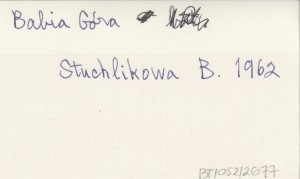 Babia Góra
Stuchlikowa B. 1962
BT/052/2677